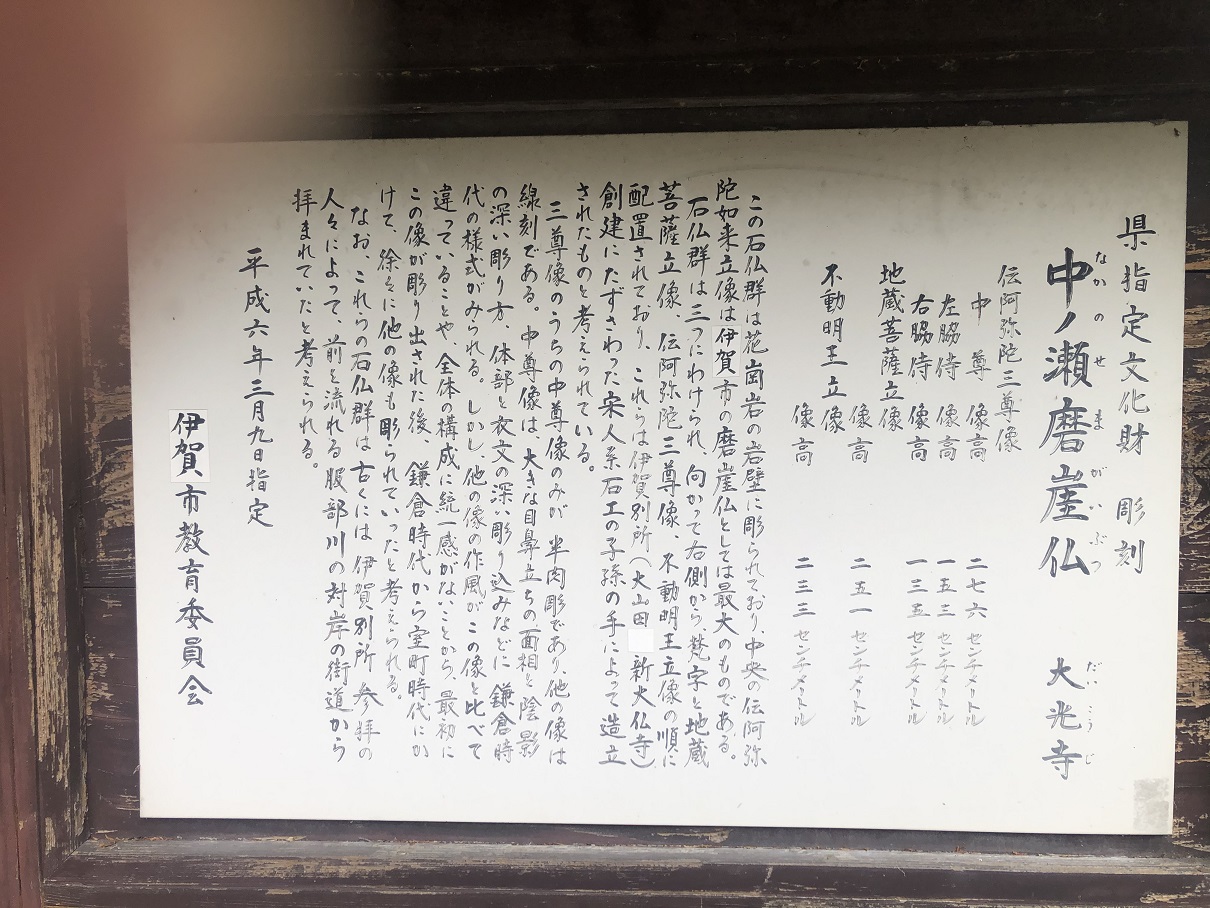 県指定文化財 彫刻
中ノ瀬磨崖仏 大光寺
なかのせまがいぶつ だいこうじ
伝阿弥陀三尊像
中尊 像高 二七六センチメートル
左脇侍 像高 一五三センチメートル
右脇侍 像高 一三五センチメートル
地蔵菩薩立像
像高 二五一センチメートル
不動明王立像
像高 二三三センチメートル
この石仏群は花崗岩の岩壁に彫られており、中央の伝阿弥
陀如来立像は伊賀市の磨崖仏としては最大のものである。
石仏群は三つにわけられ、向かって右側から梵字と地蔵
菩薩立像、伝阿弥陀三尊像、不動明王立像の順に
配置されており、これらは伊賀別所(大山田 新大仏寺)
創建にたずさわった宋人系石工の子孫の手によって造立
されたものと考えられている。
三尊像のうちの中尊像のみが半肉彫であり、他の像は
線刻である。中尊像は、大きな目鼻立ちの面相と陰影
の深い彫り方、体部と衣文の深い彫り込みなどに鎌倉時
代の様式がみられる。しかし、他の像の作風がこの像と比べて
違っていることや、全体の構成に統一感がないことから、最初に
この像が彫り出された後、鎌倉時代から室町時代にか
けて、徐々に他の像も彫られていったと考えられる。
なお、これらの石仏群は古くには伊賀別所参拝の
人々によって、前を流れる服部川の対岸の街道から
拝まれていたと考えられる。
平成六年三月九日指定
伊賀市教育委員会